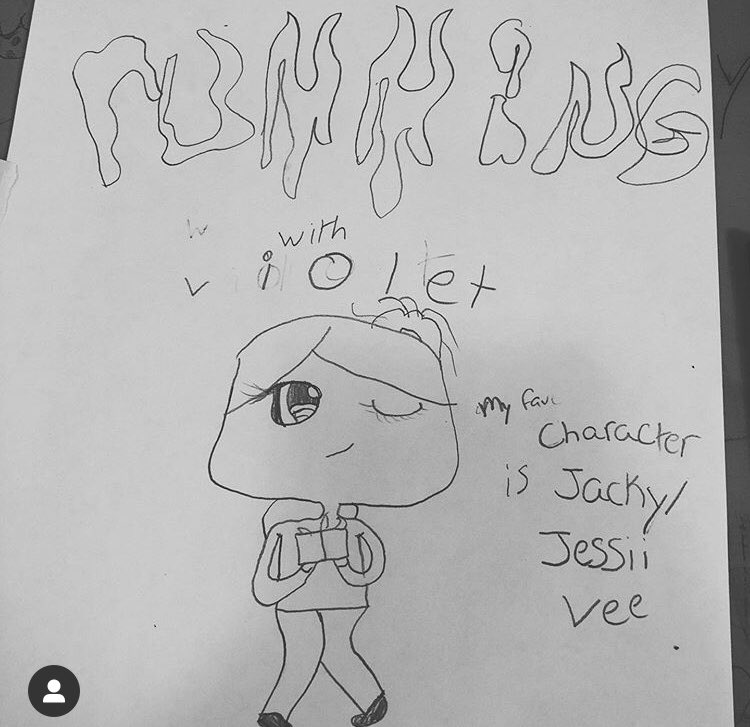 rUNNiNG
with
violet
my fav
Character
is Jacky/
Jessii
Vee